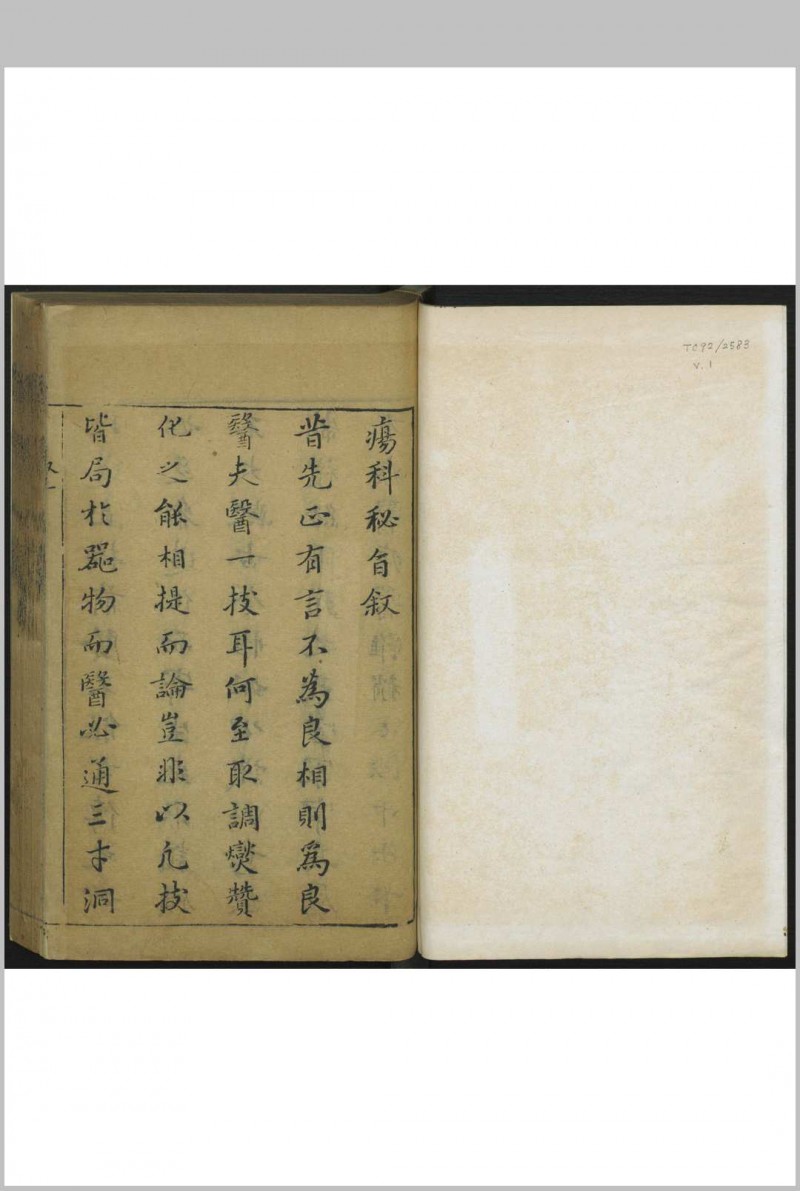 TC92/2583
v. 1
瘍科秘旨叙
昔先正有言不為良相則為良
醫夫醫一技耳何至取調爕贊
化之能相提而論豈非以凢技
皆局於器物而醫必通三才洞